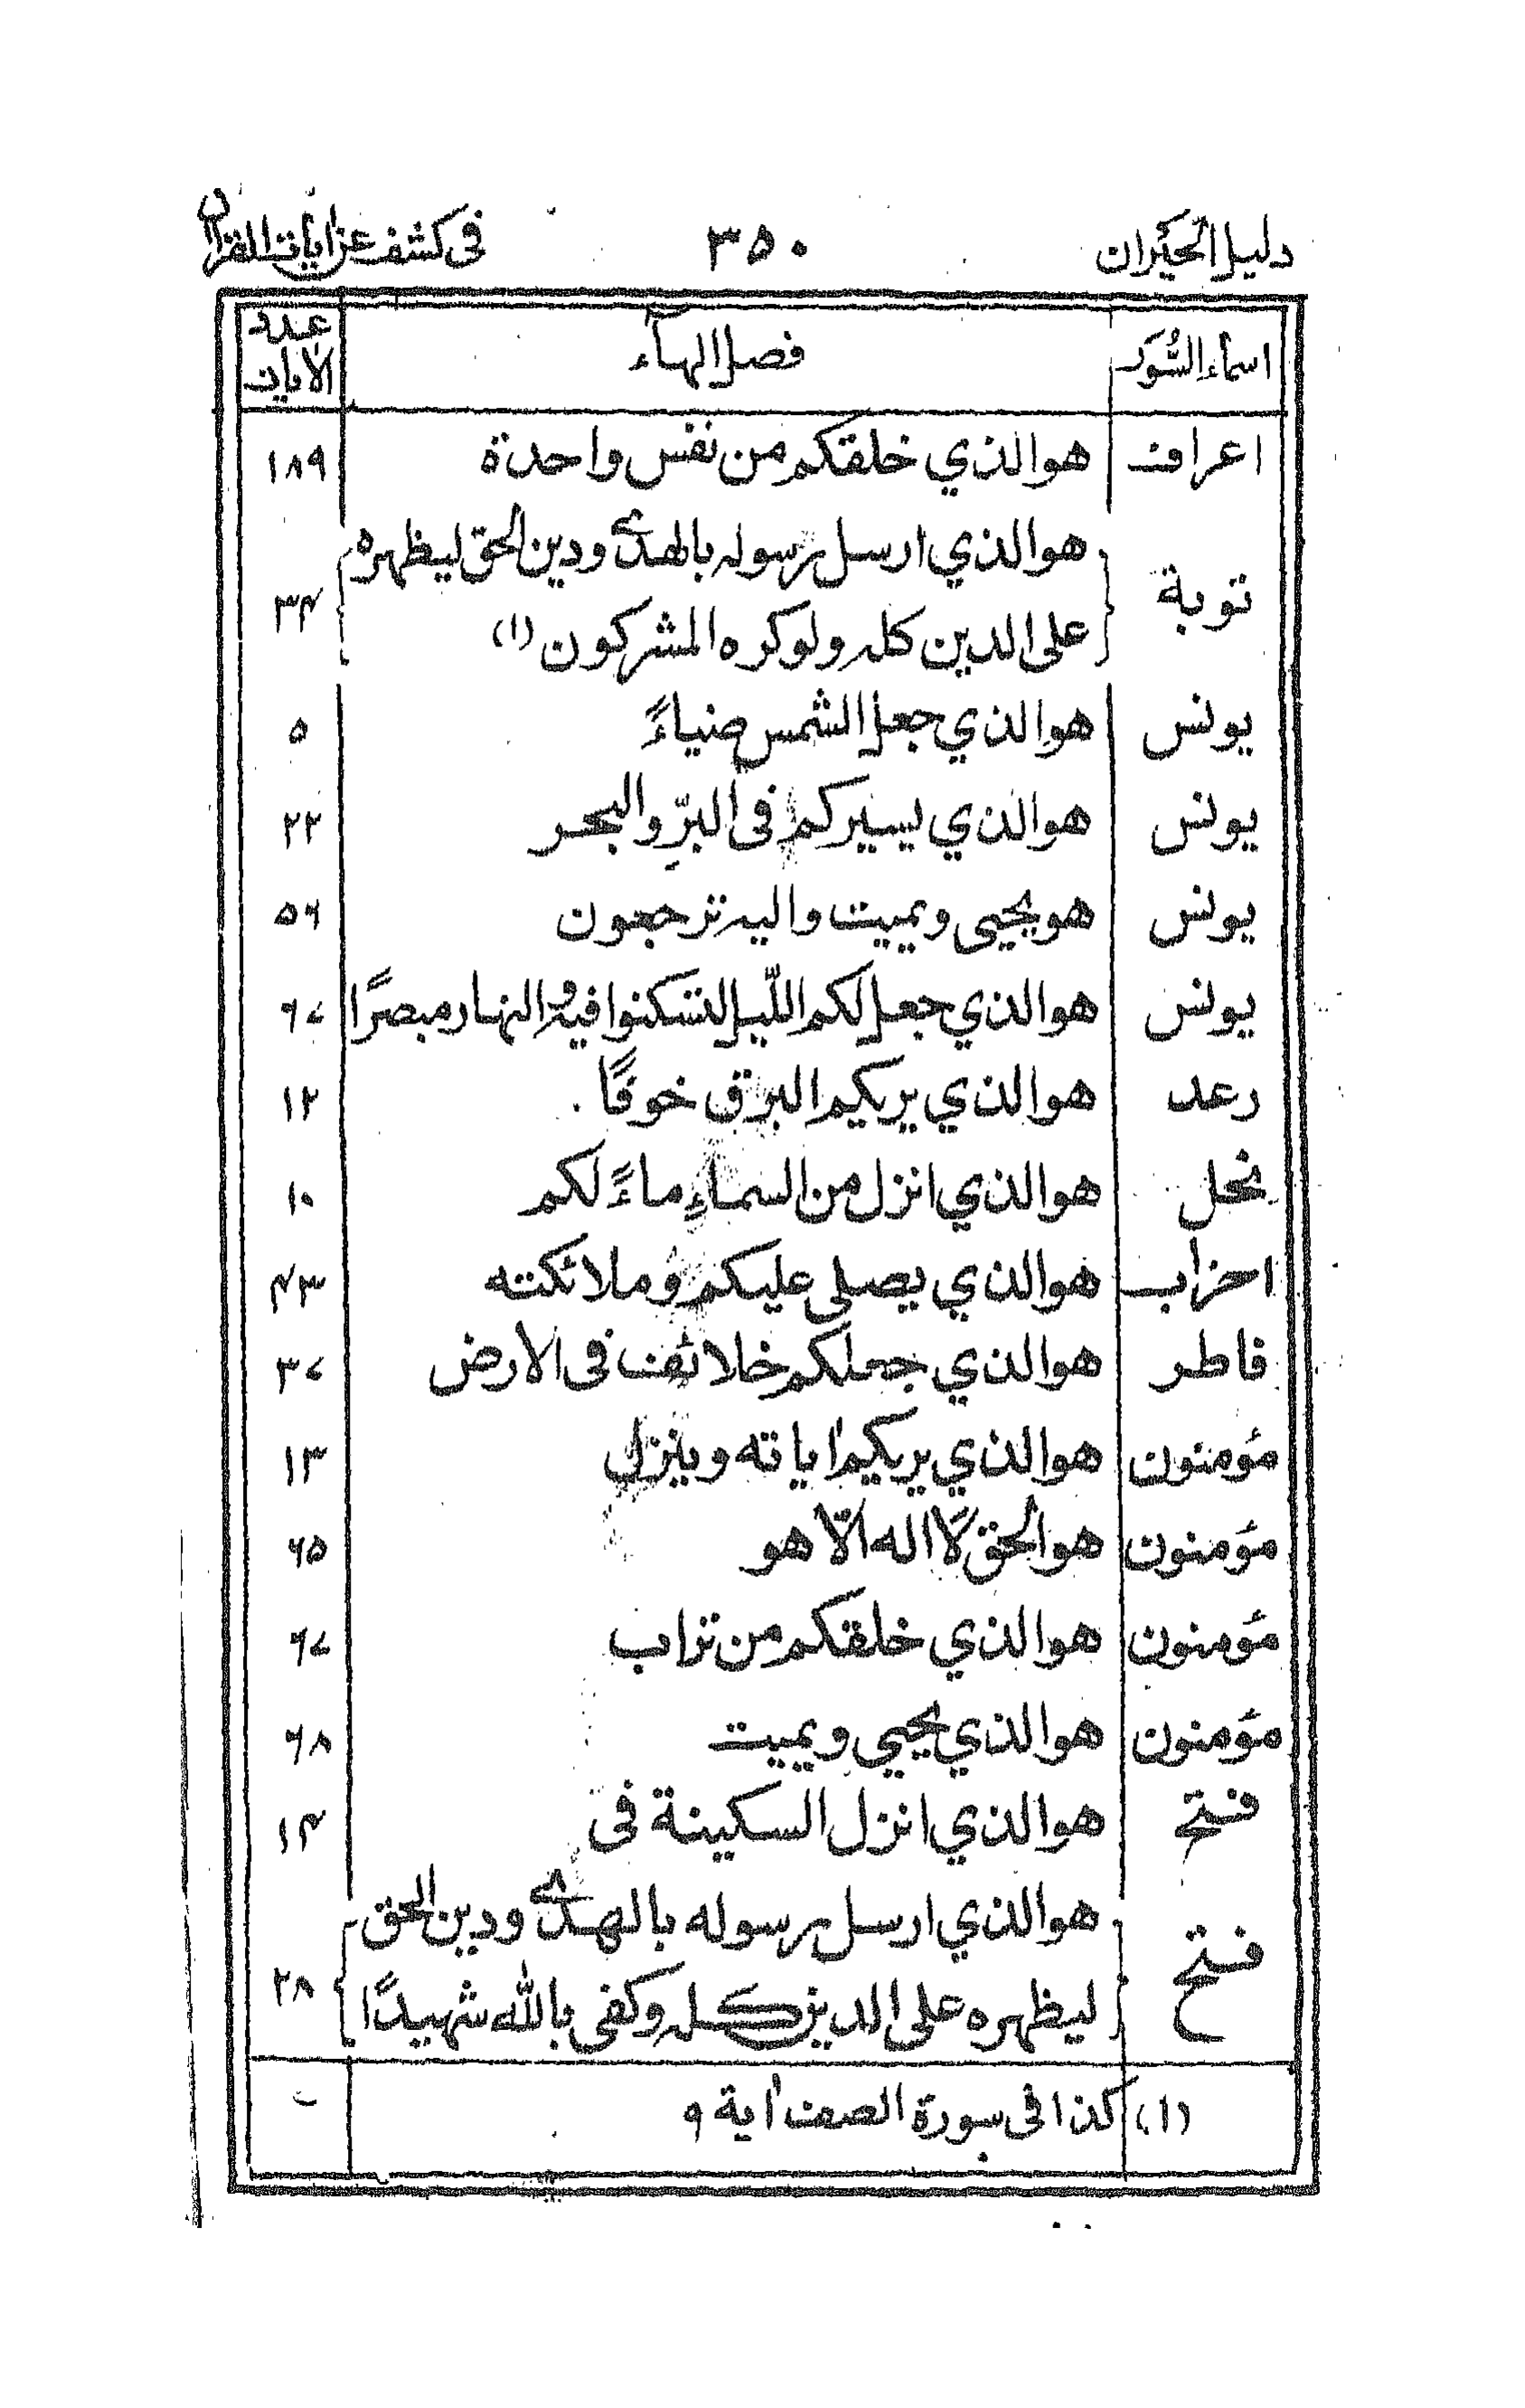 دليل الحيران ٣٥٠ فى كشف عن اٰيات القراٰن
اسماء السُّوَر فصل الهاء عدد الاٰيات
اعراف هو الذي خلقكم من نفس واحدة ١٨٩
هو الذي ارسل رسوله بالهدىٰ ودين الحق ليظهره
توبة ٣٤
على الدين كله ولو كره المشركون (١)
يونس هو الذي جعل الشمس ضياءً ٥
يونس هو الذي يسيركم فى البرّ والبحر ٢٢
يونس هو يحيى ويميت واليه ترجعون ٥٦
يونس هو الذي جعل لكم اللّيل لتسكنوا فيه والنهار مبصرًا ٦٧
رعد هو الذي يريكم البرق خوفًا ١٢
نحل هو الذي انزل من السماءِ ماءً لكم ١٠
احزاب هو الذي يصلى عليكم وملائكته ٤٣
فاطر هو الذي جعلكم خلائف فى الارض ٣٧
مؤمنون هو الذي يريكم اٰياته وينزل ١٣
مؤمنون هو الحق لا اله الّا هو ٦٥
مؤمنون هو الذي خلقكم من تراب ٦٧
مؤمنون هو الذي يحيي ويميت ٦٨
فتح هو الذي انزل السكينة فى ١٤
هو الذي ارسل رسوله بالهدىٰ ودين الحق
فتح ٢٨
ليظهره على الدين كله وكفى بالله شهيدًا
(١) كذا فى سورة الصف اٰية ٩